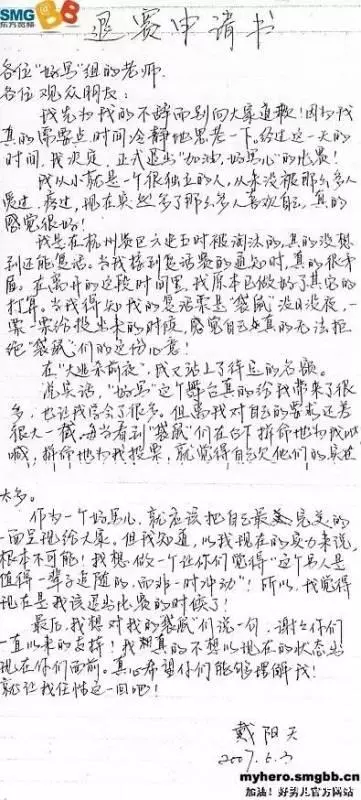 SMG
东方宽频
88
退赛申请书
各位"好男"组的老师.
各位观众朋友:
我先为我的不辞而别向大家道歉!因为我
真的需要点时间冷静地思考一下.经过这一天的
时间,我决定,正式退出"加油,好男儿"的比赛!
我从小就是一个很独立的人,从来没被那么多人
爱过,疼过,现在突然多了那么多人喜欢自己,真的
感觉很好!
我是在杭州赛区六进五时被淘汰的,真的没想
到还能复活。当我接到复活赛的通知时,真的很矛
盾。在离开的这段时间里,我原本已做好了其它的
打算。当我得知我的复活票是"袋鼠"没日没夜,一
票一票给投出来的时候,感觉自己真的无法拒
绝"袋鼠"们的这份心意!
在"大进前夜",我又站上了待定的名额。
说实话,"好男"这个舞台真的给我带来了很
多,也让我学会了很多。但离我对自己的要求还差
很大一截,每当看到"袋鼠"们在台下拼命地为我呐
喊,拼命地为我投票,就觉得自己欠他们的实在
太多。
作为一个好男儿,就应该把自己最完美的
一面呈现给大家。但我知道,以我现在的实力来说,
根本不可能!我想做一个让你们觉得"这个男人是
值得一辈子追随的,而非一时冲动"!所以,我觉得
现在是我该退出比赛的时候了!
最后,我想对我的袋鼠们说一句,谢谢你们
一直以来的支持!我真的不想以现在的状态出
现在你们面前。真心希望你们能够理解我!
就让我任性这一回吧!
戴阳天
2007.6.3
myhero.smgbb.cn
加油!好男儿官方网站